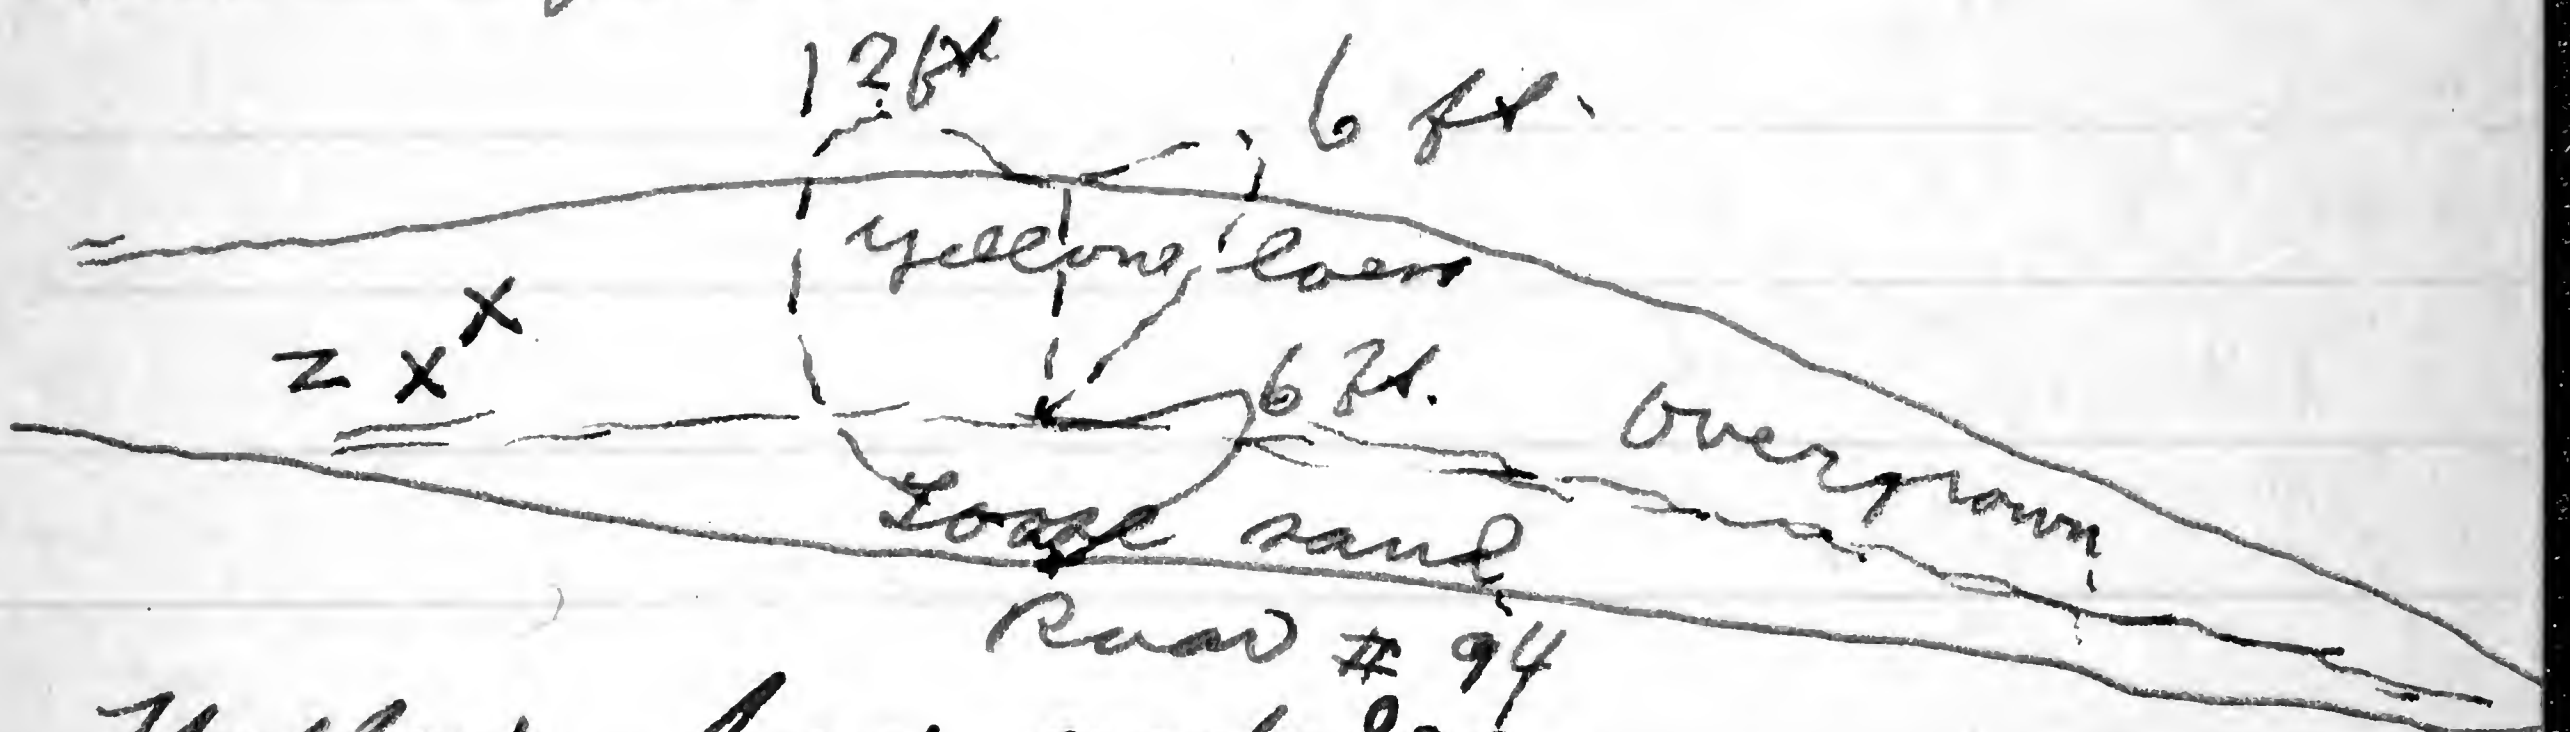 12 ft
6 ft.
yellow loess
z x x
6 ft.
Overgrown
Loose sand
Road # 94